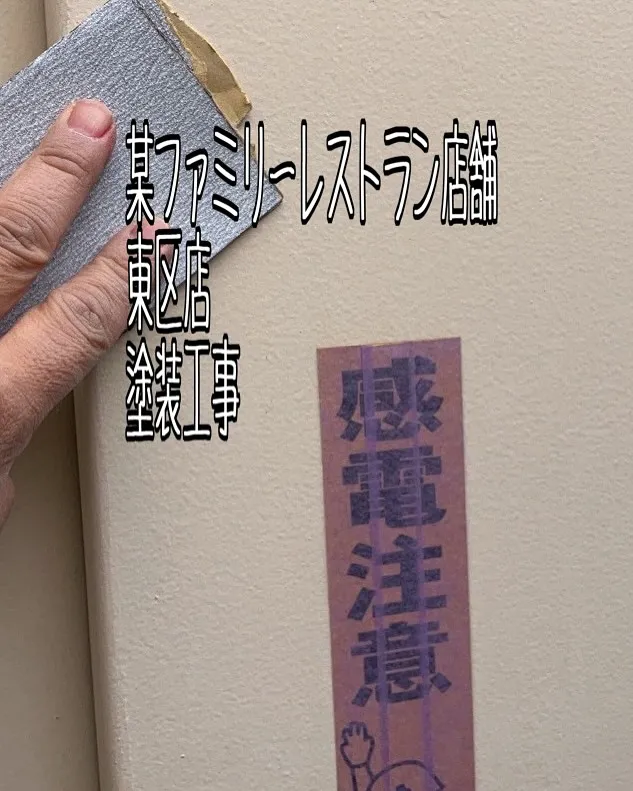 某ファミリーレストラン店舗
東区店
塗装工事
感電注意